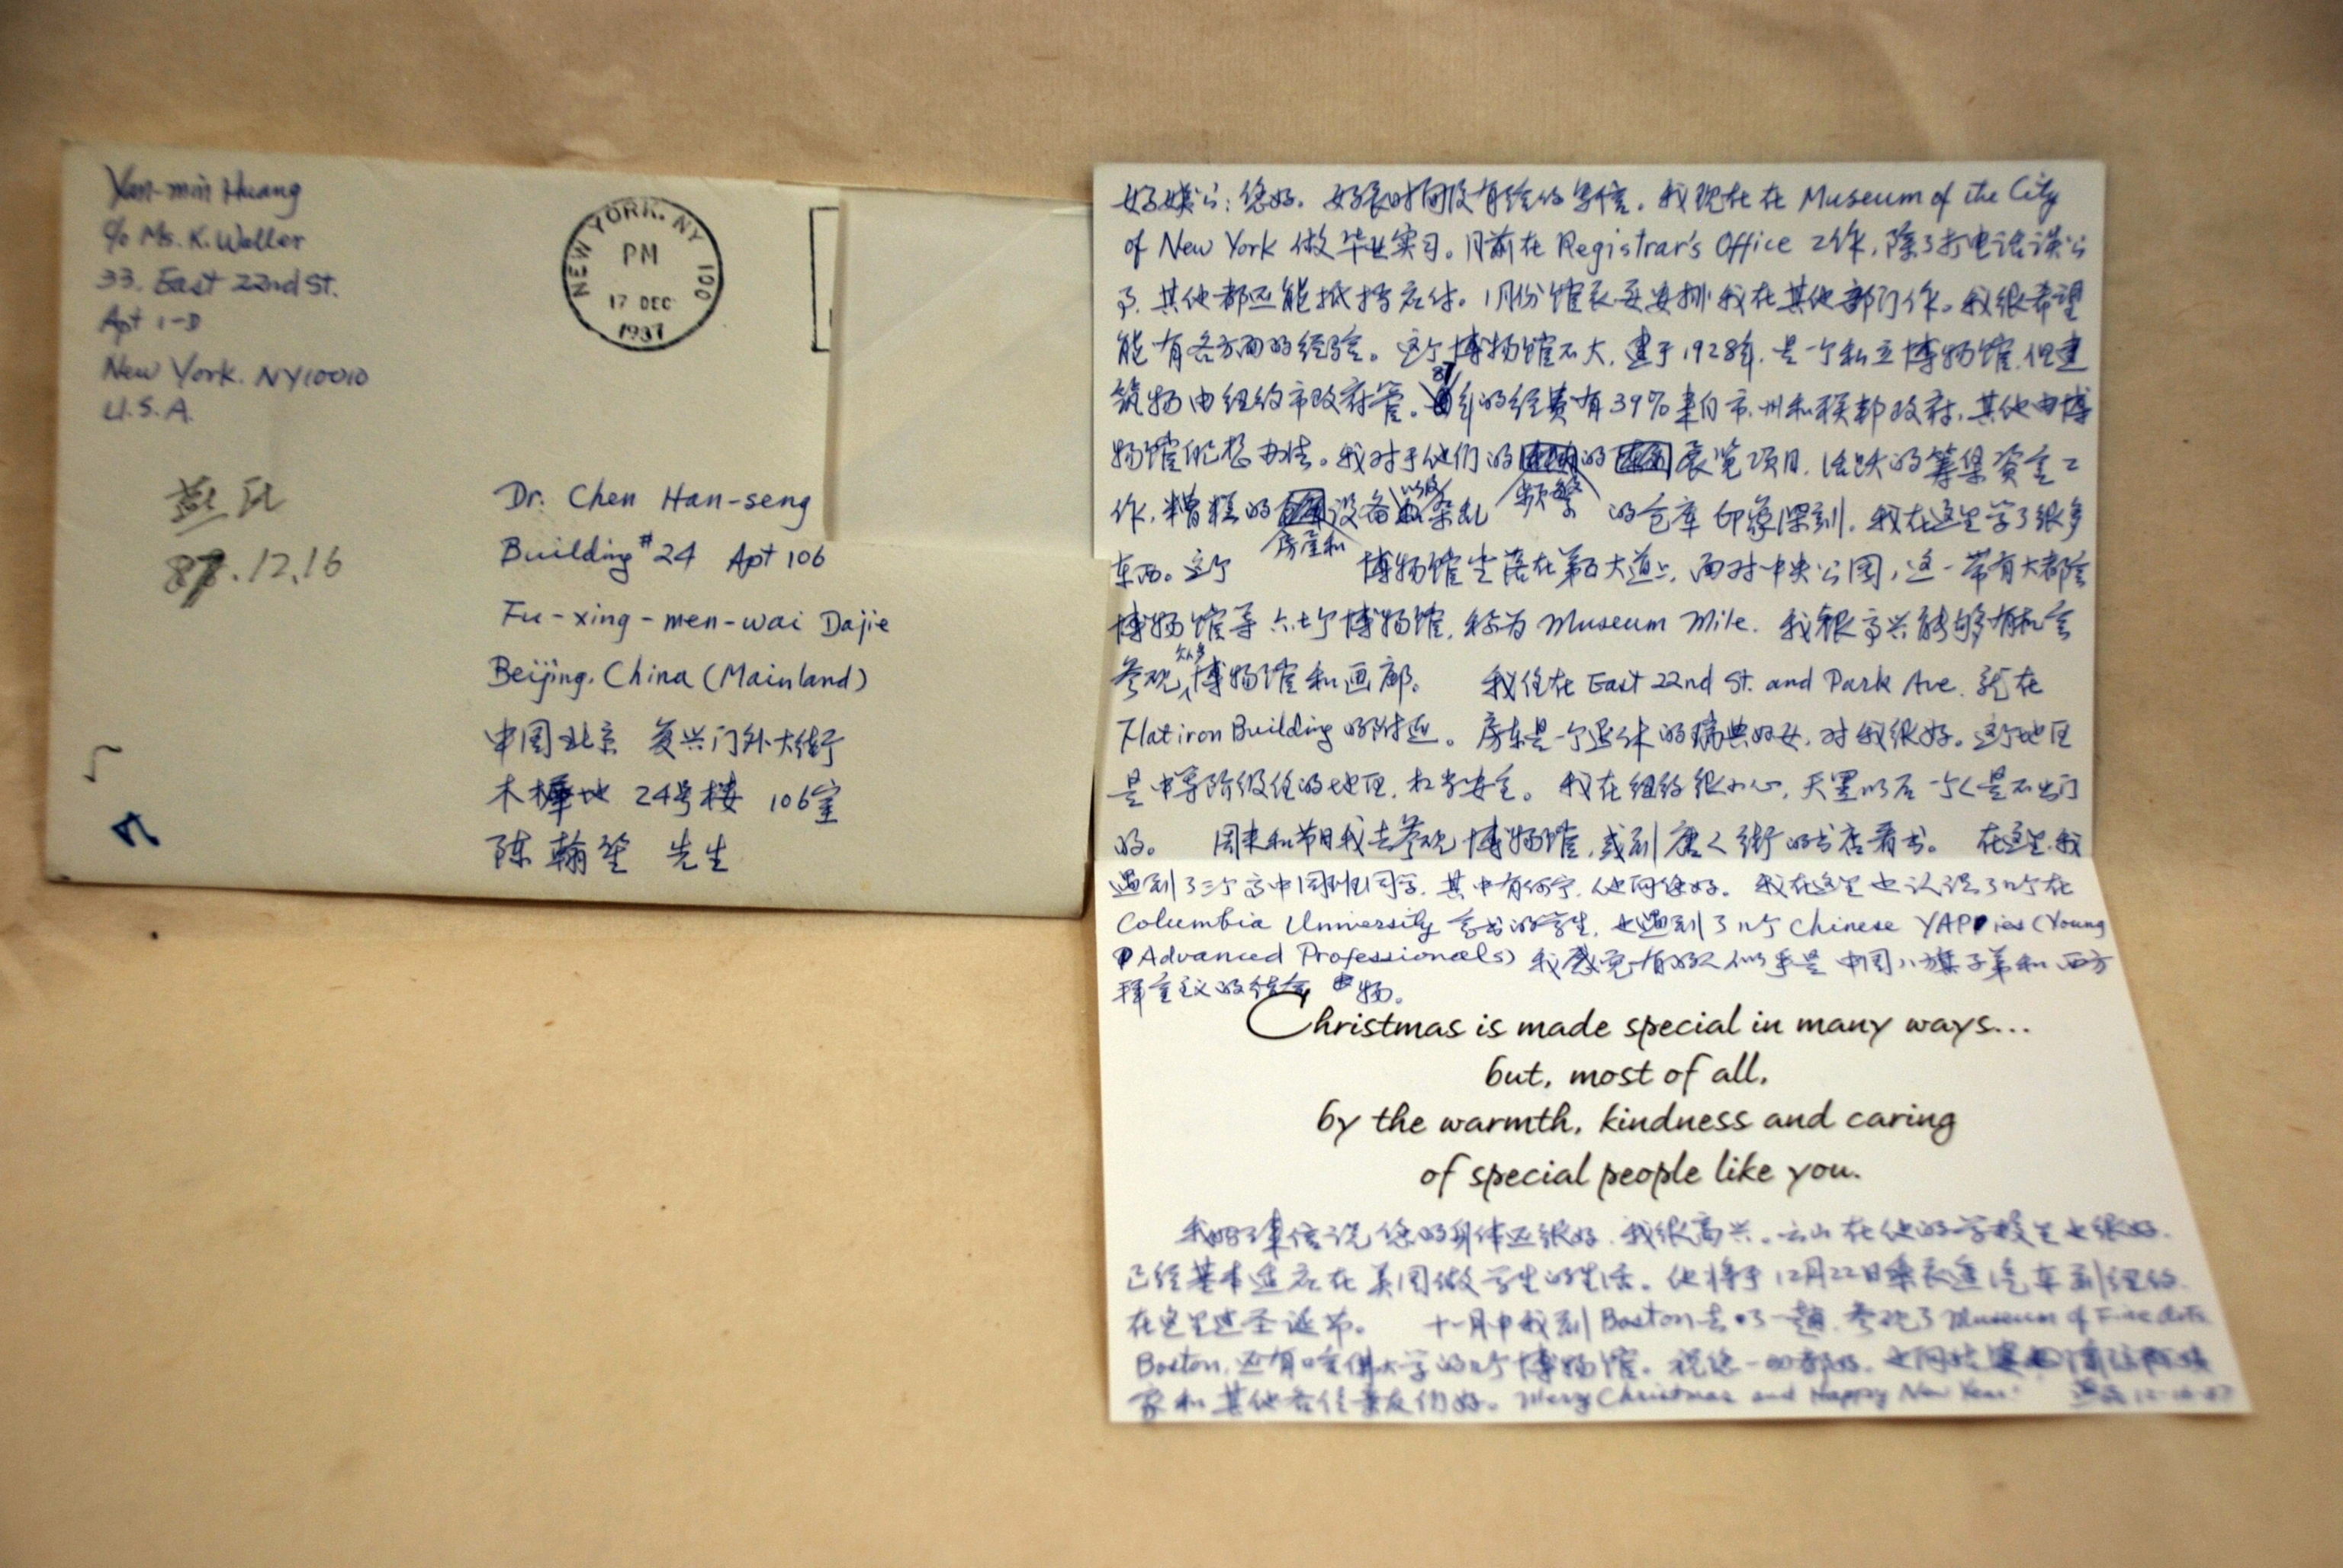 Yan-min Huang
c/o Ms. K. Waller
33. East 22nd St.
Apt 1-D
New York. NY10010
U.S.A.
NEW YORK. NY 100
PM
17 DEC
1987
燕民
87.12.16
Dr. Chen Han-seng
Building #24 Apt 106
Fu-xing-men-wai Dajie
Beijing. China (Mainland)
中国北京 复兴门外大街
木樨地 24号楼 106室
陈翰笙 先生
您好。好长时间没有给您写信。我现在在 Museum of the City
of New York 做毕业实习。目前在 Registrar's Office 工作,除了打电话谈公
事,其他都还能抵挡应付。1月份馆长要安排我在其他部门作。我很希望
能有各方面的经验。这个博物馆不大,建于1928年,是一个私立博物馆,但建
筑物由纽约市政府管。87年的经费有39%来自市、州和联邦政府,其他由博
物馆自己想办法。我对于他们的频繁的展览项目,活跃的筹集资金工
作,糟糕的房屋和设备以及杂乱的仓库印象深刻。我在这里学了很多
东西。这个博物馆坐落在第五大道上,面对中央公园,这一带有大都会
博物馆等六七个博物馆,称为 Museum Mile. 我很高兴能够有机会
参观众多博物馆和画廊。 我住在 East 22nd St. and Park Ave. 就在
Flatiron Building 的附近。房东是一个退休的瑞典妇女,对我很好。这个地区
是中等阶级住的地区,相当安全。我在纽约很小心,天黑以后一个人是不出门
的。 周末和节日我去参观博物馆,或到唐人街的书店看书。 在这里,我
遇到了三个高中同班同学,其中有何宁,他问您好。我在这里也认识了几个在
Columbia University 念书的学生,也遇到了几个 Chinese YAPies (Young
Advanced Professionals) 我感觉有的人似乎是中国八旗子弟和西方
拜金主义的结合物。
Christmas is made special in many ways...
but, most of all,
by the warmth, kindness and caring
of special people like you.
我妈来信说您的身体还很好,我很高兴。云山在他的学校里也很好,
已经基本适应在美国做学生的生活。他将于12月22日乘长途汽车到纽约
在这里过圣诞节。 十一月中我到 Boston 去了一趟,参观了 Museum of Fine Arts
Boston, 还有哈佛大学的几个博物馆。祝您一切都好。
家和其他各位亲友们好。Merry Christmas and Happy New Year! 燕民 12-16-87